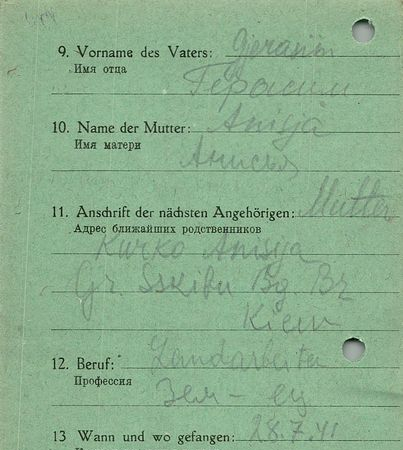 9. Vorname des Vaters: Gjerasim
Имя отца
Герасим
10. Name der Mutter: Anisja
Имя матери
Анисья
11. Anschrift der nächsten Angehörigen: Mutter
Адрес ближайших родственников
Kurko Anisja
Gr.
Kiew
12. Beruf: Landarbeiter
Профессия
Зем-ец
13 Wann und wo gefangen: 28.7.41